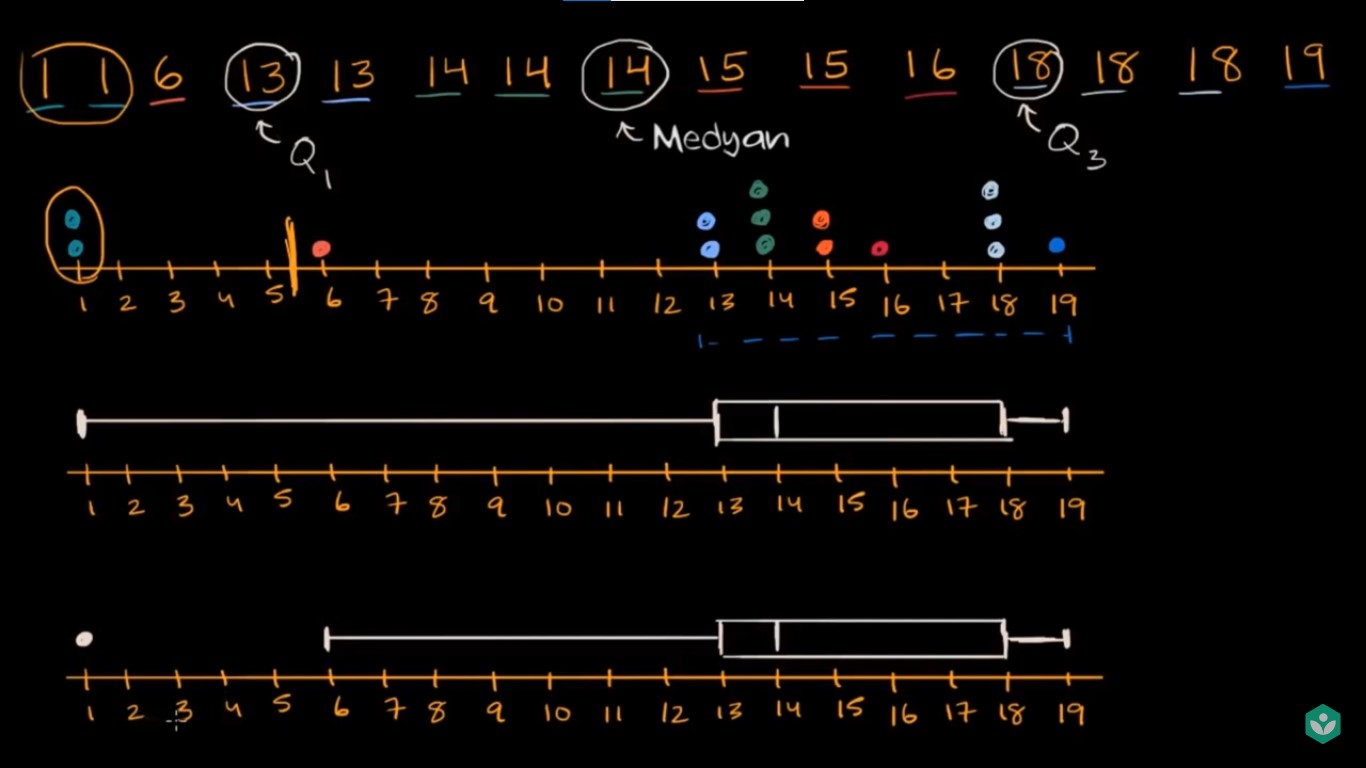 1 1 6 13 13 14 14 14 15 15 16 18 18 18 19
Q1 Medyan Q3
1 2 3 4 5 6 7 8 9 10 11 12 13 14 15 16 17 18 19
1 2 3 4 5 6 7 8 9 10 11 12 13 14 15 16 17 18 19
1 2 3 4 5 6 7 8 9 10 11 12 13 14 15 16 17 18 19